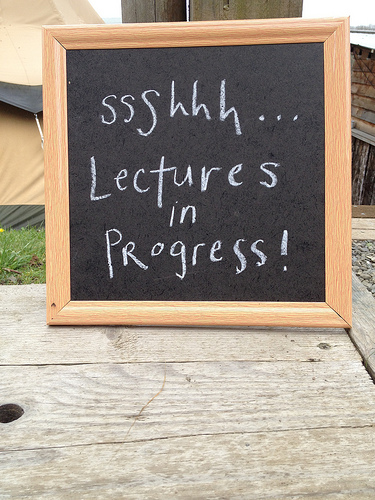 ssshhh...
Lectures
in
Progress!